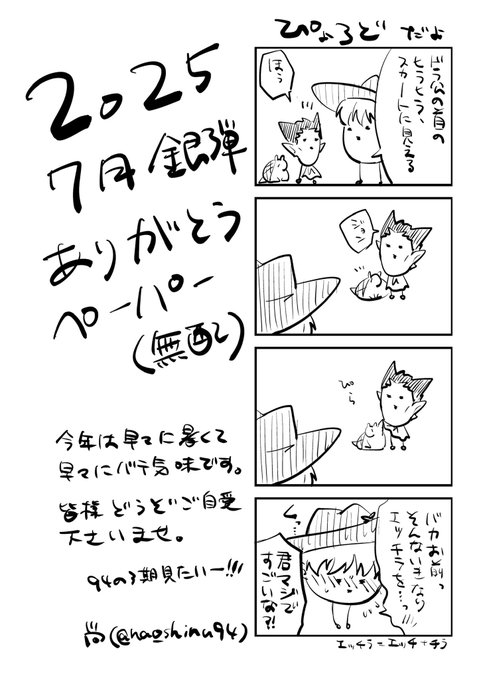 2025
7月銀弾
ありがとう
ペーパー
(無配)
今年は早々に暑くて
早々にバテ気味です。
皆様どうぞご自愛
下さいませ。
94の3期見たいー!!!
尚(@naoshinu94)
ぴょろど だよ
ドラ公の首の
ヒラヒラ、
スカートに見える
ほう
ジョン
ぴら
バカお前っ
そんないきなり
エッチラを…っ
くっ…
君マジで
すごいな?!
エッチラ=エッチ+チラ